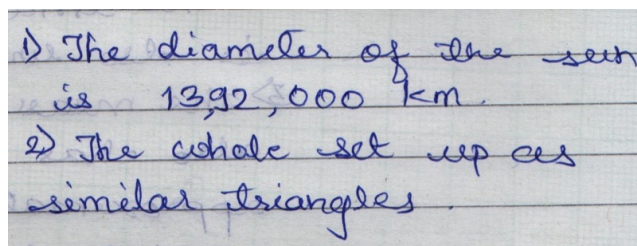 1) The diameter of the sun
is 13,92,000 km.
2) The whole set up as
similar triangles.